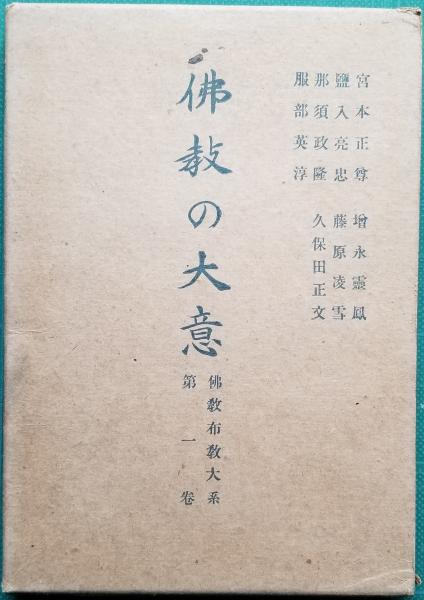 宮本正尊　增永靈鳳
鹽入亮忠　藤原凌雪
那須政隆　久保田正文
服部英淳
佛教の大意
佛教布教大系
第一卷